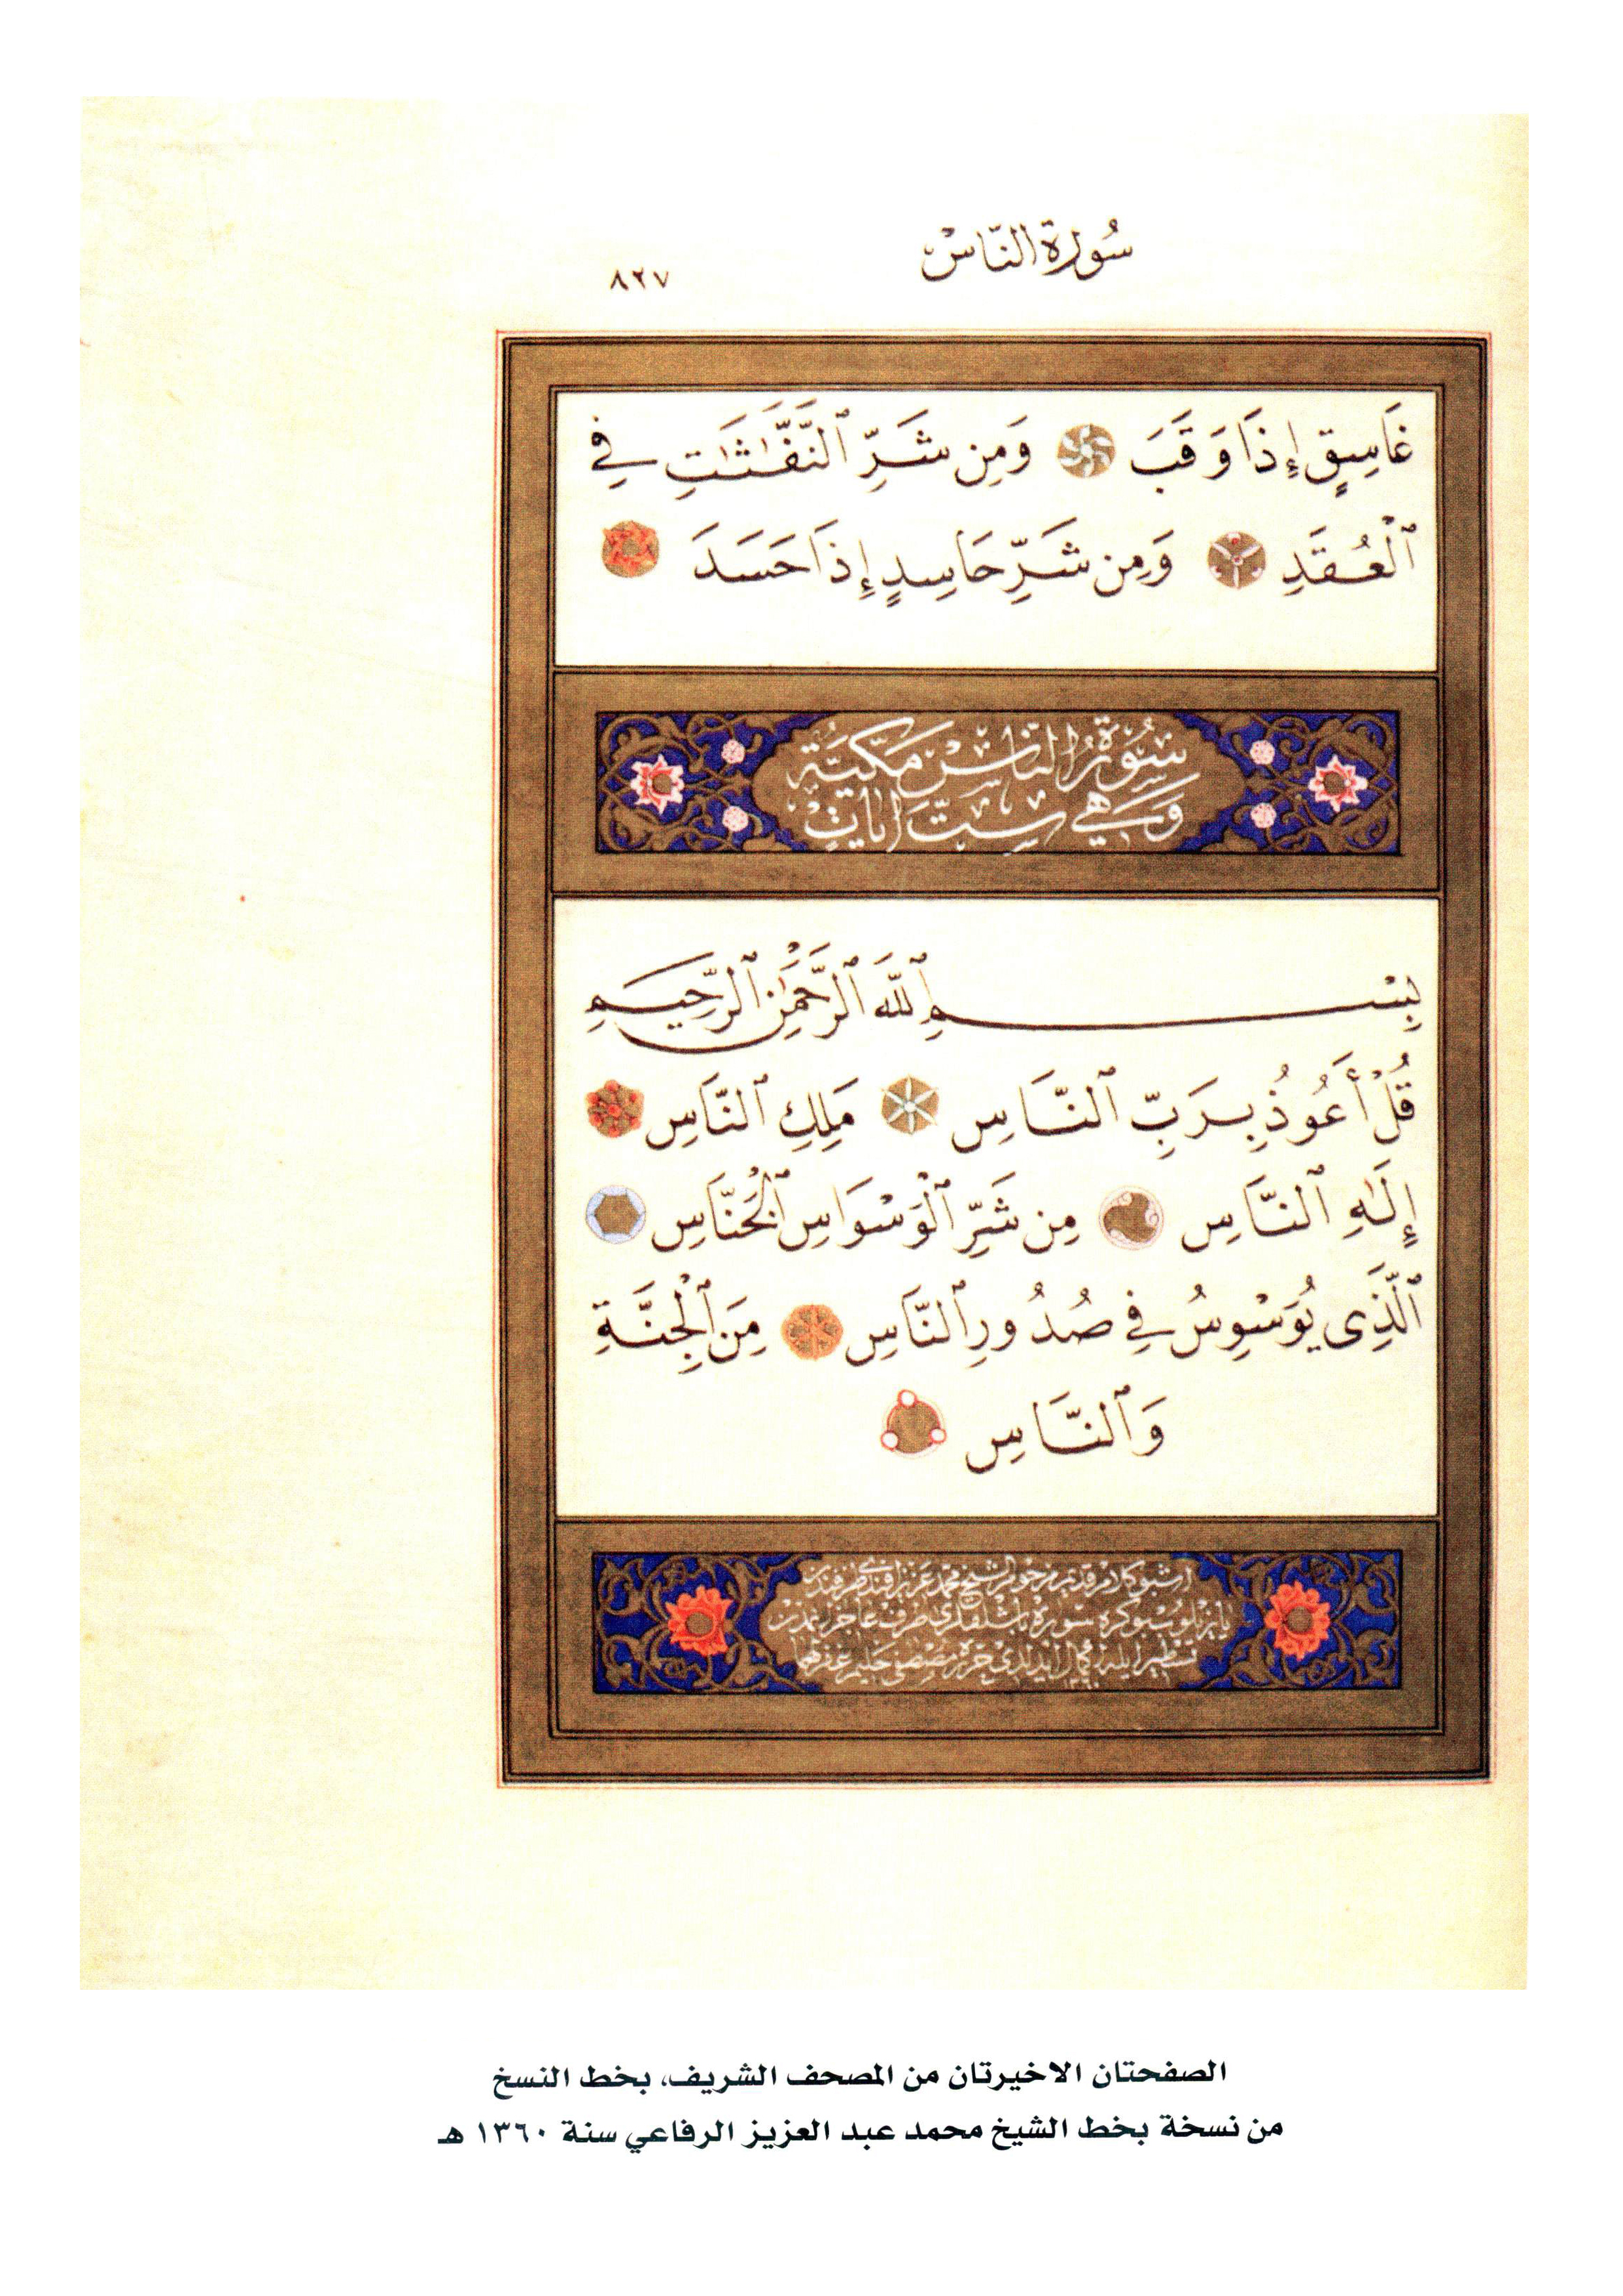 سُورَةُ النَّاسْ
٨٢٧
غَاسِقٍ إِذَا وَقَبَ وَمِن شَرِّ ٱلنَّفَّٰثَٰتِ فِي
ٱلْعُقَدِ وَمِن شَرِّ حَاسِدٍ إِذَا حَسَدَ
سُورَةُ النَّاسِ مَكِّيَّةٌ
وَهِيَ سِتُّ اٰيَاتٍ
بِسْمِ ٱللَّهِ ٱلرَّحْمَٰنِ ٱلرَّحِيمِ
قُلْ أَعُوذُ بِرَبِّ ٱلنَّاسِ مَلِكِ ٱلنَّاسِ
إِلَٰهِ ٱلنَّاسِ مِن شَرِّ ٱلْوَسْوَاسِ ٱلْخَنَّاسِ
ٱلَّذِى يُوَسْوِسُ فِي صُدُورِ ٱلنَّاسِ مِنَ ٱلْجِنَّةِ
وَٱلنَّاسِ
الشيخ محمد عزيز افندى
سوره
حرره مصطفى حليم غفر لهما
١٣٦٠
الصفحتان الاخيرتان من المصحف الشريف، بخط النسخ
من نسخة بخط الشيخ محمد عبد العزيز الرفاعي سنة ١٣٦٠ هـ